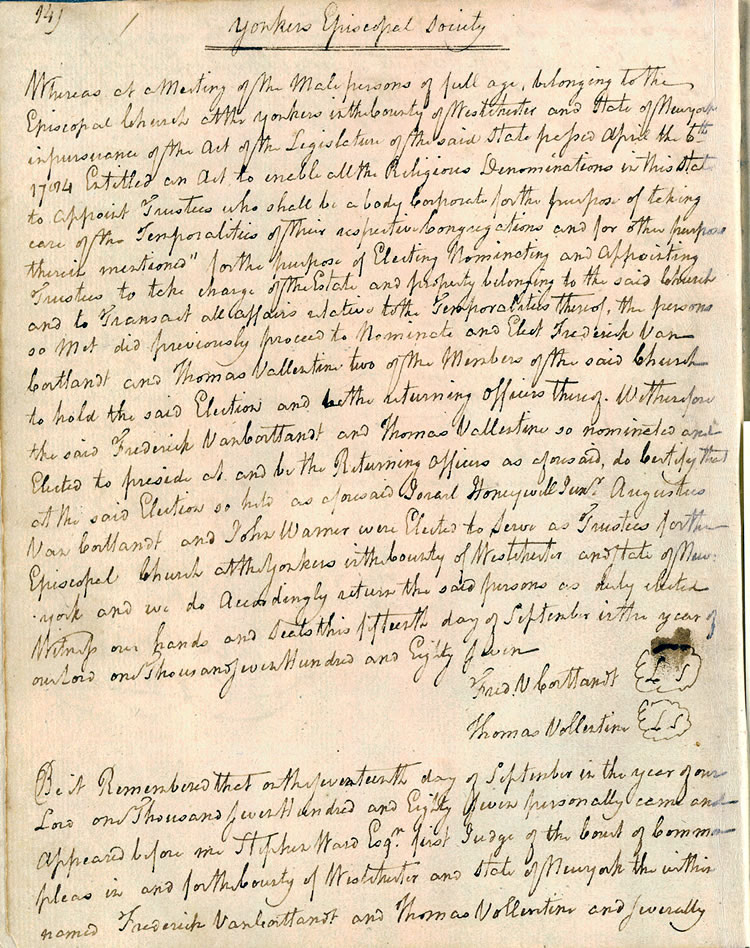 149
Yonkers Episcopal Society
Whereas at a Meeting of the Male persons of full age, belonging to the
Episcopal Church at the yonkers in the County of Westchester and State of Newyork
in pursueance of the Act of the Legislature of the said State passed April the 6th
1784 Entitled an Act to enable all the Religious Denominations in this State
to appoint Trustees who shall be a body Corporate for the purpose of taking
care of the Temporalities of their respective Congregations and for other purpose
therein mentioned" for the purpose of Electing Nominating and Appointing
Trustees to take charge of the Estate and property belonging to the said Church
and to Transact all affairs relative to the Temporalities thereof, the persons
so Met did previously proceed to Nominate and Elect Frederick Van
Cortlandt and Thomas Vallentine two of the Members of the said Church
to hold the said Election and be the returning officers thereof. We therefore
the said Frederick VanCortlandt and Thomas Vallentine so nominated and
Elected to preside at and be the Returning officers as aforesaid, do Certify that
at the said Election so held as aforesaid Israel Honeywell Junr. Augustus
Van Cortlandt and John Warner were Elected to serve as Trustees for the
Episcopal Church at the Yonkers in the County of Westchester and state of New:
york and we do Accordingly return the said persons as duly elected
Witness our hands and Seals this fifteenth day of September in the year of
our Lord one Thousand Seven Hundred and Eighty Seven
Fred. V Cortlandt L S
Thomas Vollentine L S
Be it Remembered that on the Seventeenth day of September in the year of our
Lord one Thousand Seven Hundred and Eighty Seven personally came and
Appeared before me Stephen Ward Esqr. first Judge of the Court of Common
pleas in and for the County of Westchester and State of Newyork the within
named Frederick VanCortlandt and Thomas Vollentine and severally